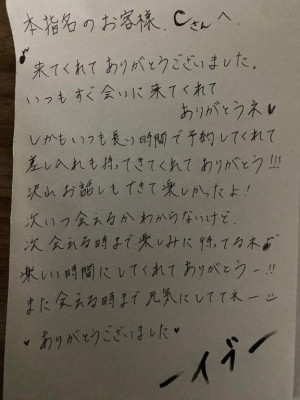 本指名のお客様、Cさんへ
♪来てくれてありがとうございました。
いつもすぐ会いに来てくれて
ありがとうネ♥
しかもいつも長い時間で予約してくれて
差し入れも持ってきてくれてありがとう!!!
沢山お話しもできて楽しかったよ!
次いつ会えるかわからないけど、
次会える時まで楽しみに待ってるネ♪
楽しい時間にしてくれてありがとうー!!
また会える時まで元気にしててネー
♥ありがとうございました♥
ーイヴー